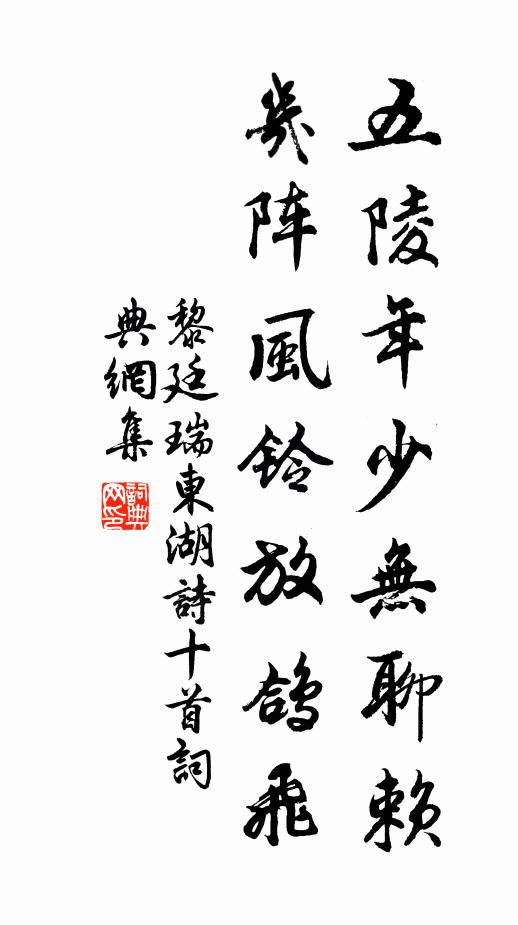 五陵年少無聊赖
幾阵風鈴放鴿飛
黎廷瑞東湖詩十首詞
典網集
詞典网印